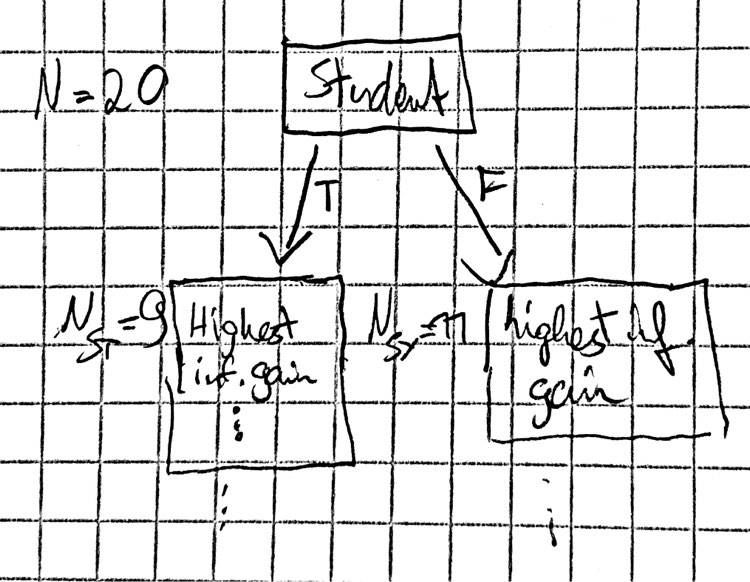 N = 20
Student
T
F
N_ST = 9
Highest
inf. gain
highest inf.
gain